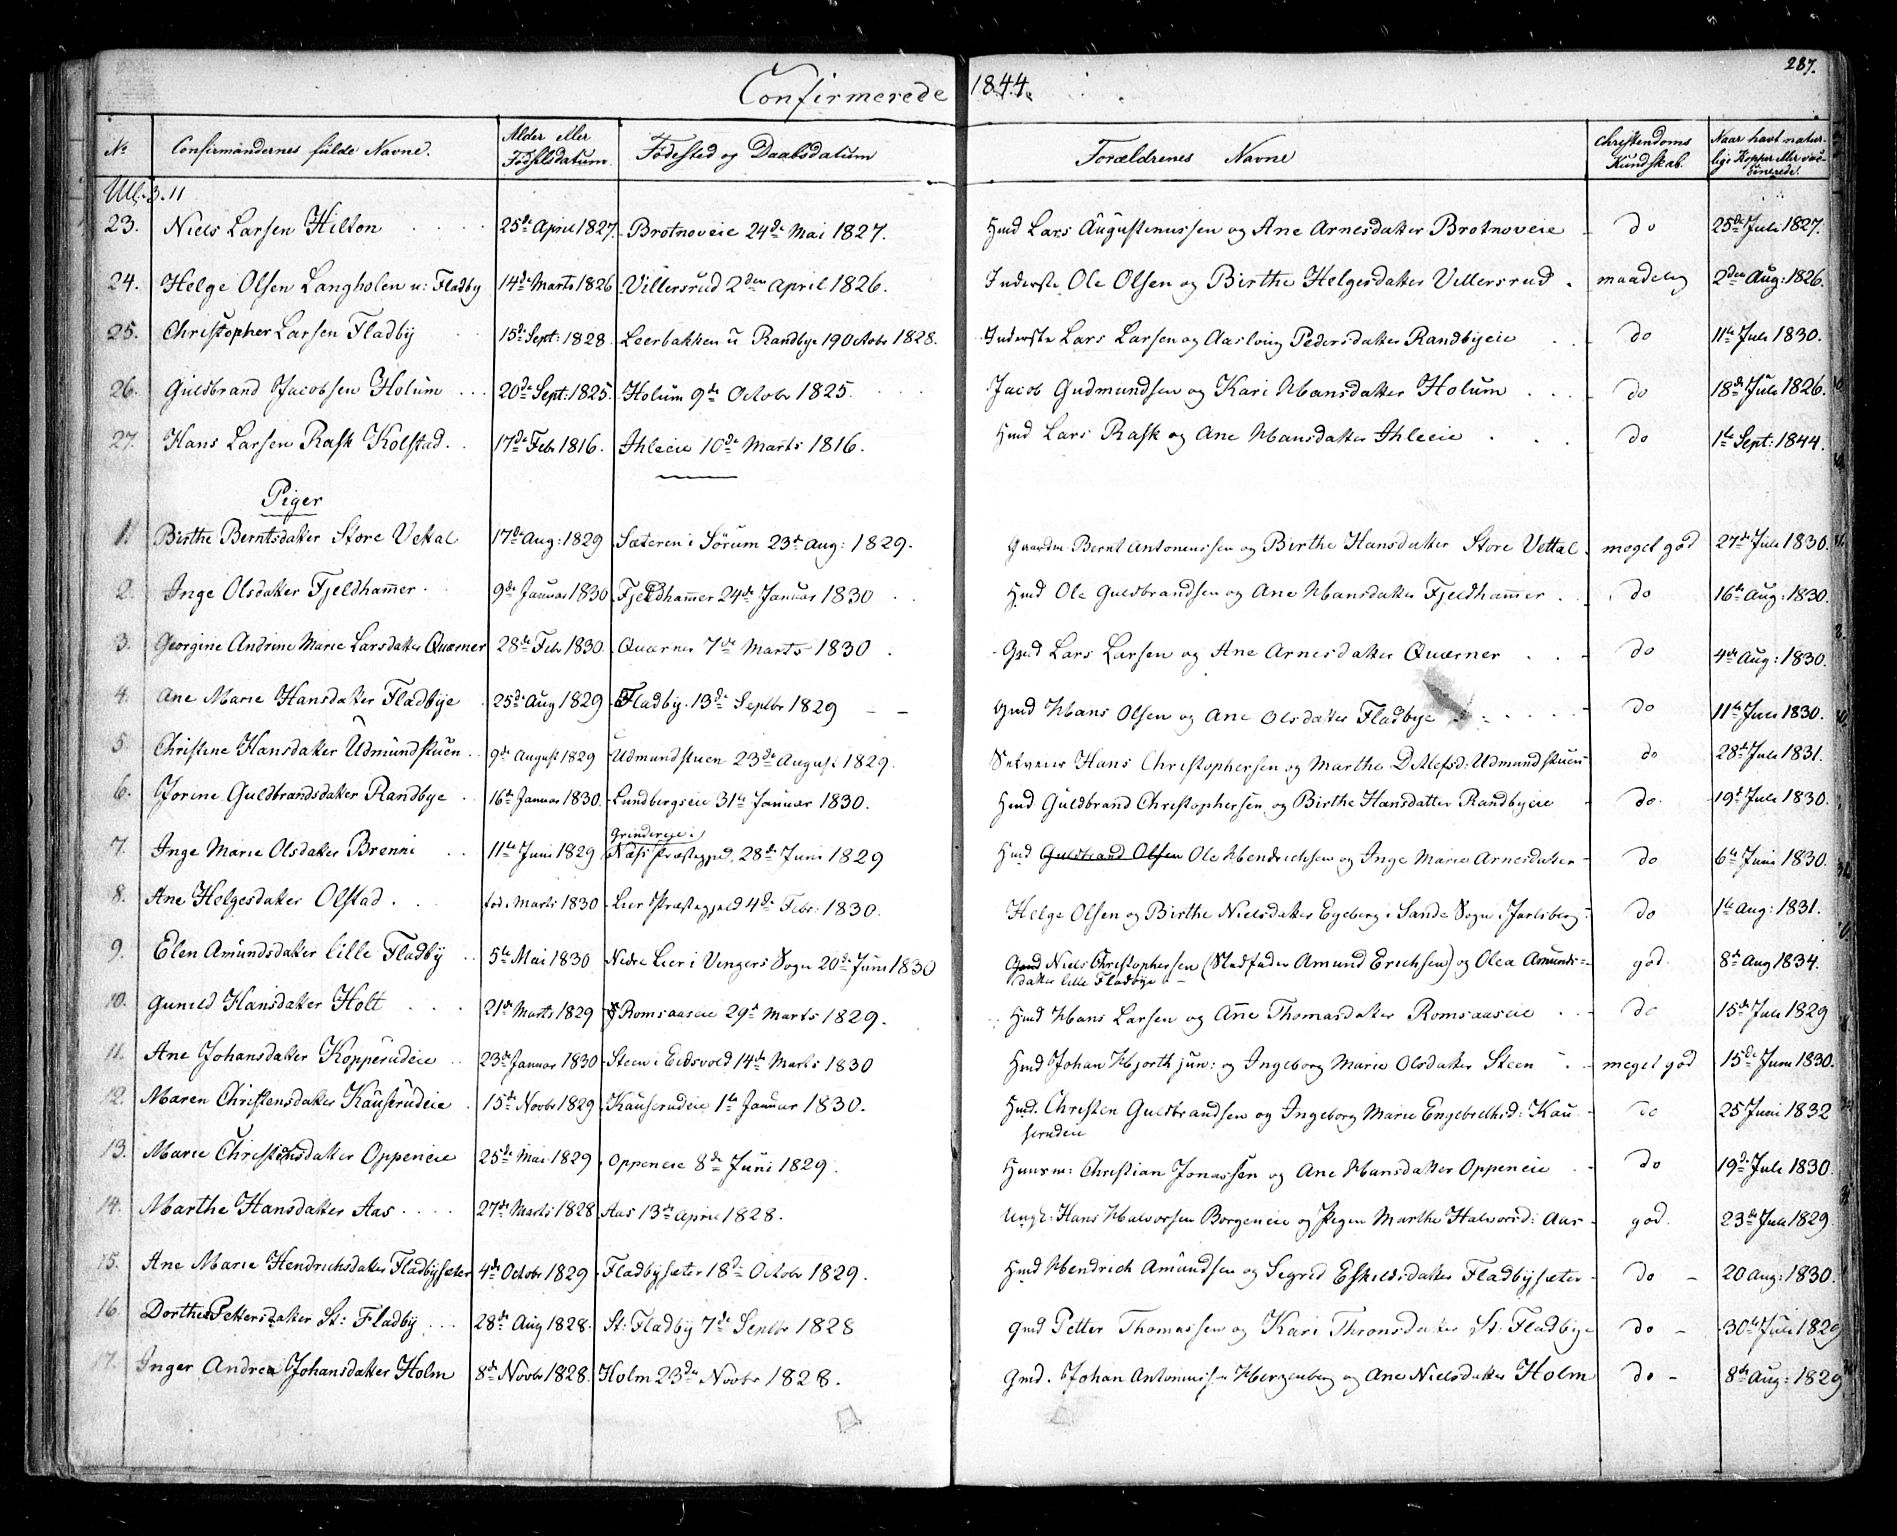 Confirmerede 1844.
287.
No Confirmandernes fulde Navne. Alder eller Fødselsdatum. Fødested og Daabsdatum Forældrenes Navne Christendoms Kundskab. Naar havt naturlige Kopper eller vaccinerede.
Ull. 3. 11
23. Niels Larsen Hilton 25de April 1827. Brotnoveie 24de Mai 1827. Hmd Lars Augustinussen og Ane Arnesdatter Brotnoveie do 25de Juli 1827.
24. Helge Olsen Langholen u: Fladby 14de Marts 1826 Villersrud 2den April 1826. Inderste Ole Olsen og Birthe Helgesdatter Villersrud maadelig 2den Aug: 1826.
25. Christopher Larsen Fladby 15de Sept: 1828 Leerbakken u Randbye 19 Octobr 1828. Inderste Lars Larsen og Aasloug Pedersdatter Randbyeie do 11te Juli 1830.
26. Guldbrand Jacobsen Holum 20de Sept: 1825. Holum 9de Octobr 1825. Jacob Gudmundsen og Kari Hansdatter Holum do 18de Juli 1826.
27. Hans Larsen Rask Kolstad. 17de Febr 1816. Ihleeie 10de Marts 1816. Hmd Lars Rask og Ane Hansdatter Ihleeie do 1te Sept: 1844.
Piger
1. Birthe Berntsdatter Store Vettal 17de Aug: 1829 Sæteren i Sørum 23de Aug: 1829. Bernt Antonussen og Birthe Hansdatter Store Vettal meget god 27de Juli 1830.
2. Inge Olsdatter Fjeldhammer 9de Januar 1830 Fjeldhammer 24de Januar 1830 Hmd Ole Guldbrandsen og Ane Hansdatter Fjeldhammer do 16te Aug: 1830.
3. Georgine Andrine Marie Larsdatter Quærner 28de Febr 1830 Quærner 7de Marts 1830 Gmd Lars Larsen og Ane Arnesdatter Quærner do 4de Aug: 1830.
4. Ane Marie Hansdatter Fladbye 25de Aug 1829 Fladby. 13de Septbr 1829 Gmd Hans Olsen og Ane Olsdatter Fladbye do 11te Juni 1830.
5. Christine Hansdatter Udmundstuen 9de August 1829 Udmundstuen 23de August 1829. Selveier Hans Christophersen og Marthe Detlefsd: Udmundstuen do 28de Juli 1831.
6. Jorine Guldbrandsdatter Randbye 16de Januar 1830. Lundbergseie 31te Januar 1830. Hmd Guldbrand Christophersen og Birthe Hansdatter Randbyeie do. 19de Juli 1830.
7. Inge Marie Olsdatter Brenni 11te Juni 1829 Grindereie i Næss Præstegjd, 28de Juni 1829 Hmd Guldbrand Olsen Ole Hendrichsen og Inge Marie Arnesdatter do 6te Juni 1830.
8. Ane Helgesdatter Olstad. Marts 1830 Lier Præstegjeld 4de Febr: 1830. Helge Olsen og Birthe Nielsdatter Egeberg i Sande Sogn i Jarlsberg do 1te Aug: 1831.
9. Elen Amundsdatter lille Fladby 5te Mai 1830 Nedre Lier i Vingers Sogn 20de Juni 1830 Gmd Niels Christophersen (Stedfader Amund Erichsen) og Olea Amundsdatter lille Fladbye god. 8de Aug 1834.
10. Gunild Hansdatter Holt 21de Marts 1829 Romsaaseie 29de Marts 1829. Hmd Hans Larsen og Ane Thomasdatter Romsaaseie do 15de Juli 1829
11. Ane Johansdatter Kopperudeie 23de Januar 1830 Steen i Eidsvold 14de Marts 1830 Hmd Johan Hjorth jun: og Ingeborg Marie Olsdatter Steen meget god 15de Juni 1830.
12. Maren Christensdatter Kauserudeie 15de Novbr 1829 Kauserudeie 1te Januar 1830. Hmd. Christen Guldbrandsen og Ingeborg Marie Engebrethsd: Kauserudeie do 25 Juni 1832
13. Marie Christensdatter Oppeneie 25de Mai 1829 Oppeneie 8de Juni 1829. Husm: Christian Jonassen og Ane Hansdatter Oppeneie do 19de Juli 1830.
14. Marthe Hansdatter Aas 27de Marts 1828 Aas 13de April 1828. Ungk: Hans Halvorsen Borgeneie og Pigen Marthe Halvorsd: Aas god. 23de Juli 1829.
15. Ane Marie Hendrichsdatter Fladbysæter 4de Octobr 1829 Fladbysæter 18de Octobr 1829. Hmd Hendrich Amundsen og Segrid Eskildsdatter Fladbysæter do 20 Aug: 1830.
16 Dorthea Pettersdatter St: Fladby 28de Aug 1828. St: Fladby 7de Septbr 1828 Gmd Petter Thomassen og Kari Thronsdatter St: Fladbye do 30te Juli 1829
17. Inger Andrea Johansdatter Holm 8de Novbr 1828. Holm 23de Novbr 1828. Gmd. Johan Antonius Hergenberg og Ane Nielsdatter Holm do 8de Aug: 1829